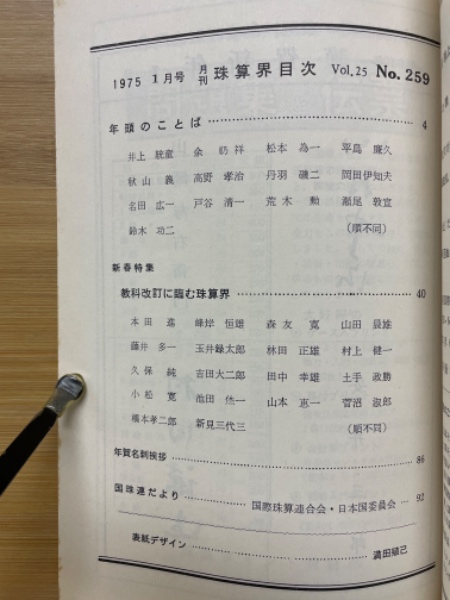 1975 1月号 月刊 珠算界目次 Vol.25 No.259
年頭のことば 4
井上 統童 余 礽祥 松本 為一 平島 廉久
秋山 義 高野 孝治 丹羽 磯二 岡田伊知夫
名田 広一 戸谷 清一 荒木 勲 瀬尾 敦宣
鈴木 功二 (順不同)
新春特集
教科改訂に臨む珠算界 40
本田 進 峰岸 恒雄 森友 寛 山田 晨雄
藤井 多一 玉井録太郎 林田 正雄 村上 健一
久保 純 吉田大二郎 田中 幸雄 土手 政勝
小松 寛 池田 山本 恵一 菅沼 淑郎
橋本孝二郎 新見三代三 (順不同)
年賀名刺挨拶 86
国珠連だより 国際珠算連合会・日本国委員会 92
表紙デザイン 満田